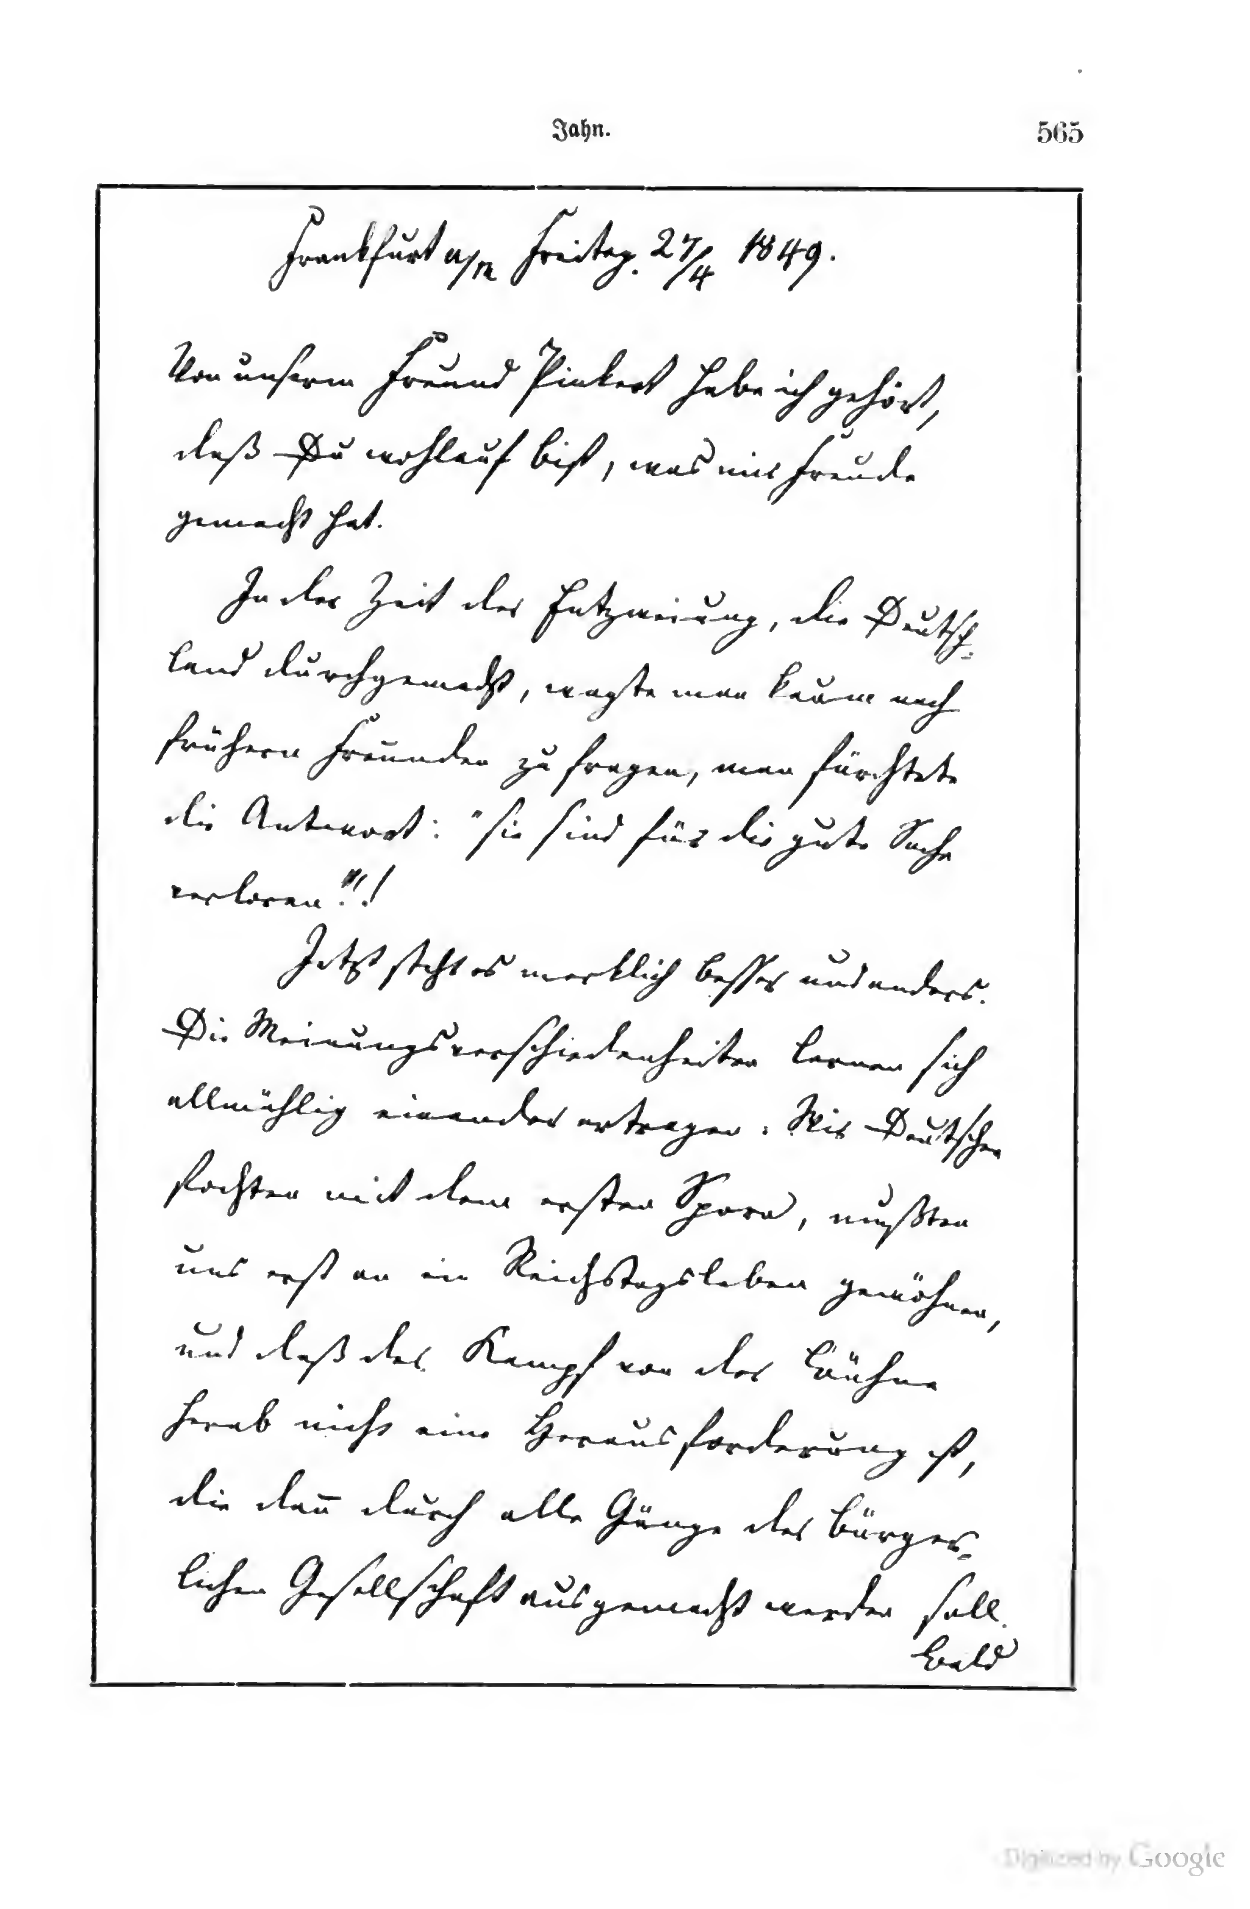 Jahn.
565
Frankfurt a/M Freitag. 27/4 1849.
Von unserm Freund Pinkert habe ich gehört,
daß Du wohlauf bist, was mir Freude
gemacht hat.
In der Zeit der Entzweiung, die Deutsch-
land durchgemacht, wagte man kaum nach
frühern Freunden zu fragen, man fürchtete
die Antwort: "sie sind für die gute Sache
verloren"!!
Jetzt steht es merklich besser und anders.
Die Meinungsverschiedenheiten lernen sich
allmählig einander ertragen. Wir Deutschen
fochten mit dem ersten Sporn, mußten
uns erst an ein Reichstagsleben gewöhnen,
und daß der Kampf von der Bühne
herab nicht eine Herausforderung ist,
die dan̄ durch alle Gänge der bürger-
lichen Gesellschaft ausgemacht werden soll.
Bald
Digitized by Google